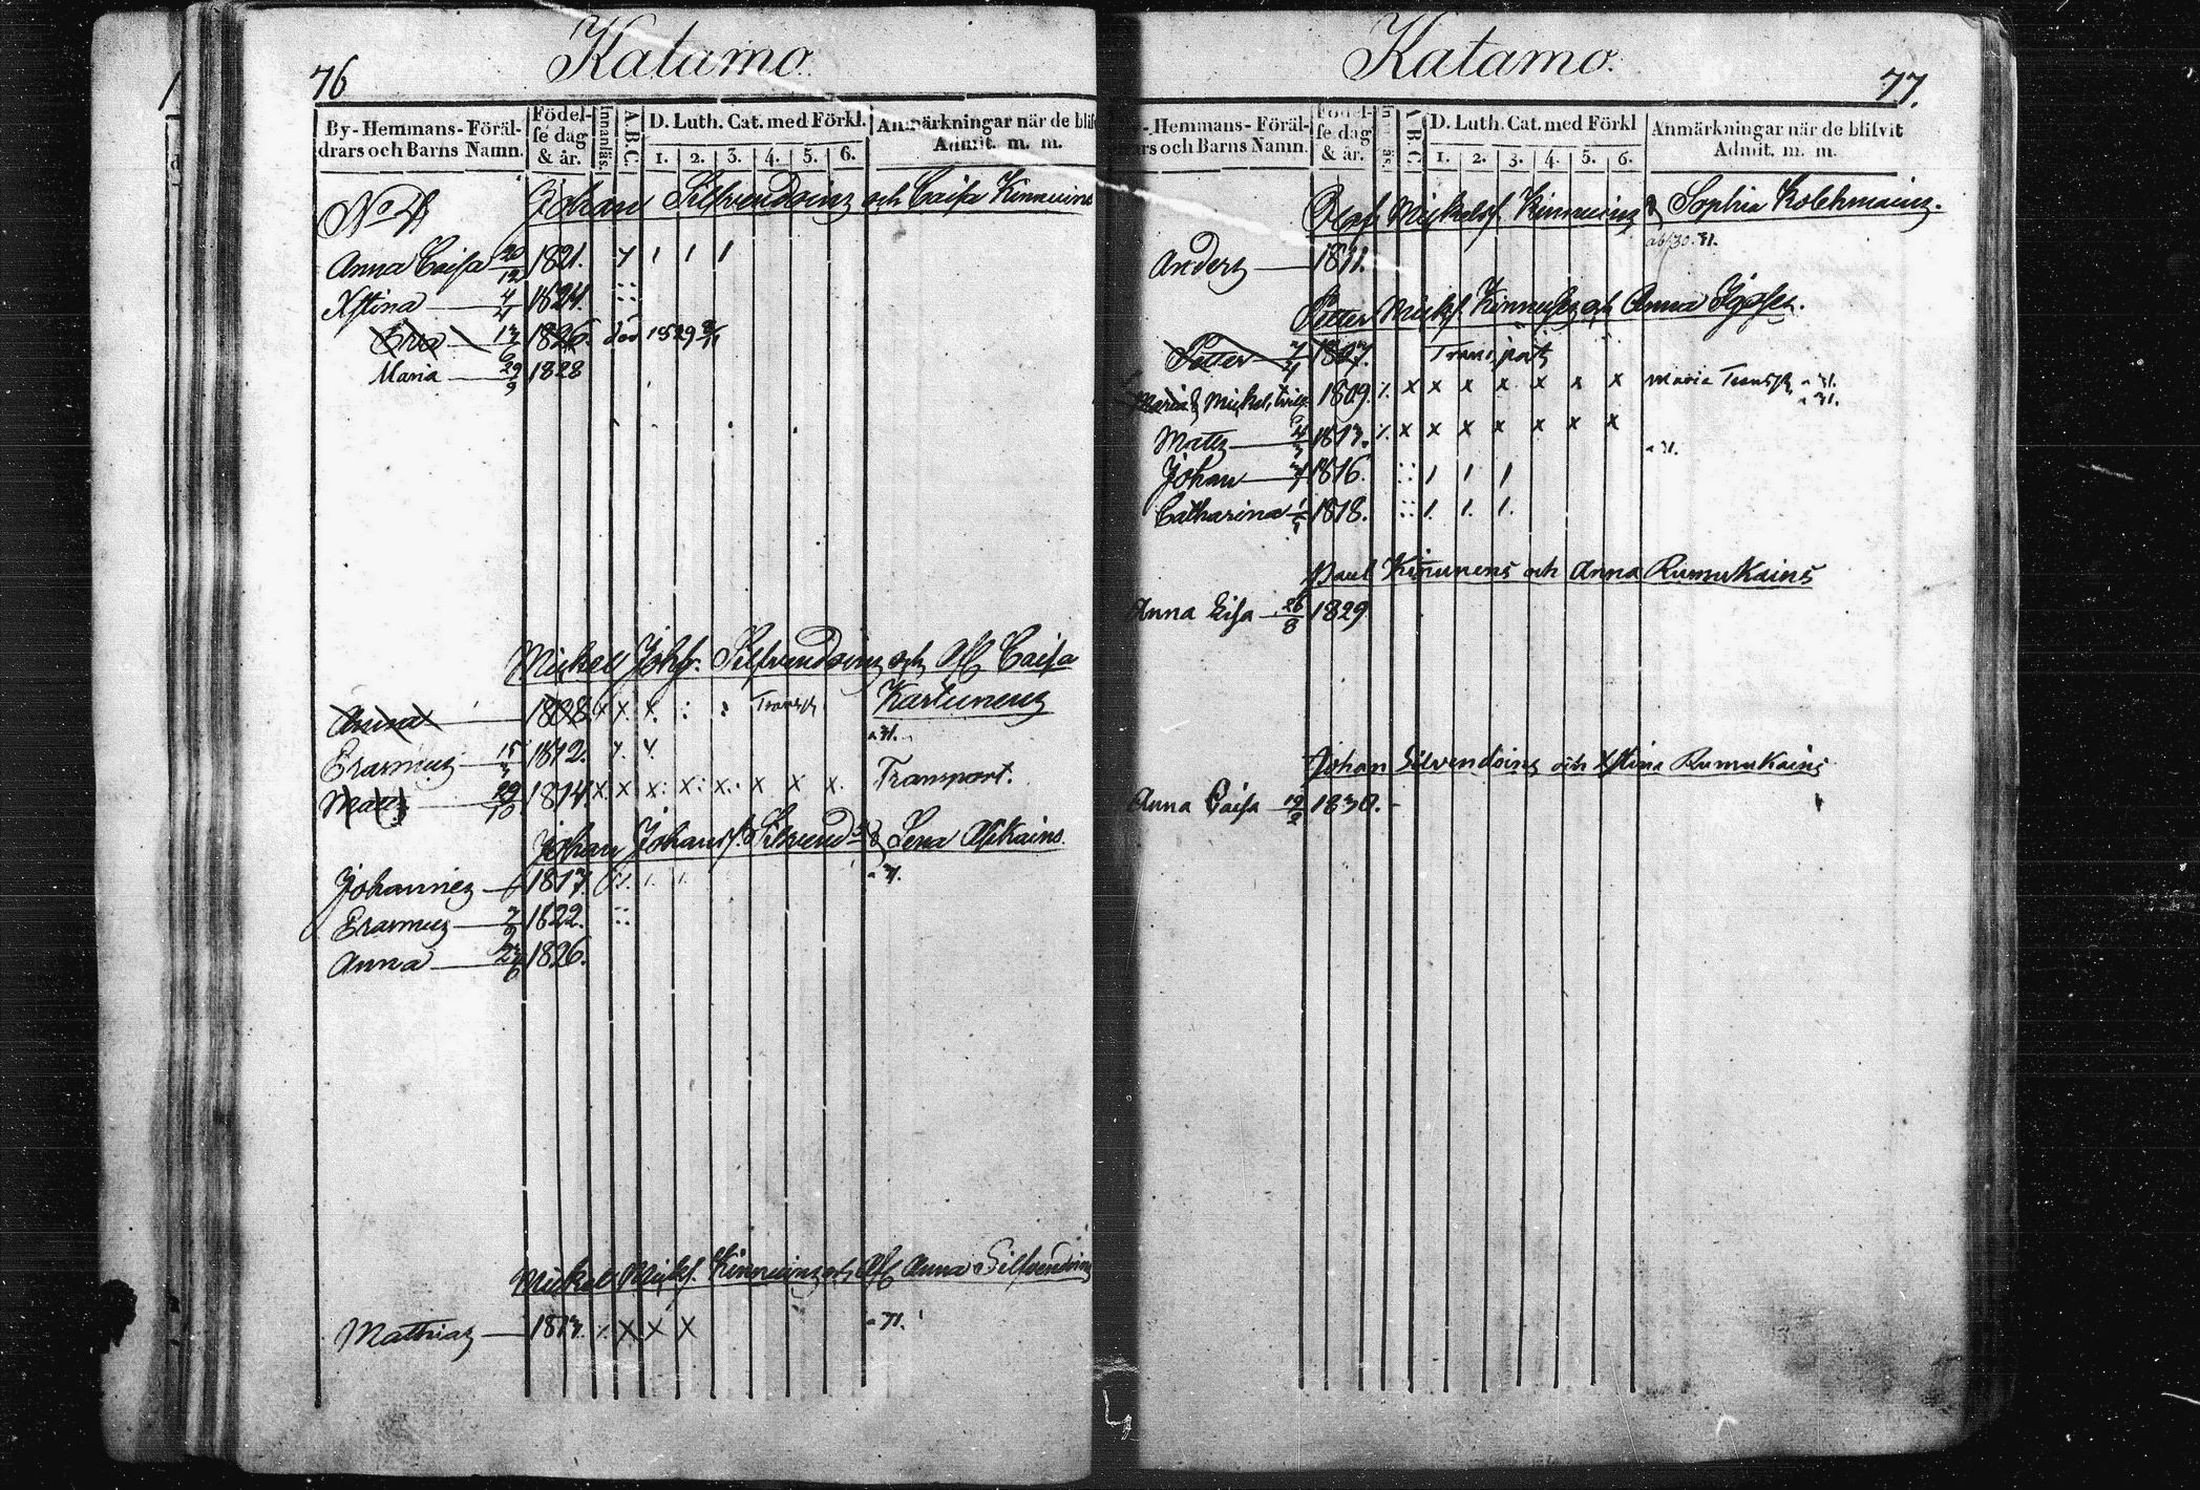 76
Katamo.
By-Hemmans-Föräl-
drars och Barns Namn.
Födel-
se dag
& år.
Innanläs.
A.B.C.
D. Luth. Cat. med Förkl.
1. 2. 3. 4. 5. 6.
Anmärkningar när de blif
Admit. m. m.
No 4
Johan Silfvendoinz och Caisa Kinnuins
Anna Caisa 20/12 1821.
Xstina 4/4 1824.
1826. död 1829
Maria 29/9 1828
Mickel Johss. Silfvendoinz och Caisa
Kartunenz
Anna 1808. x x x Transp
Erasmuz 15/3 1812.
Matts 29/10 1814. x x x x x x x x Transport.
Johan Johanss. Silvend & Lena Asikains.
Johannez 1817.
Erasmuz 1822.
Anna 1826.
Mickel Mickss. Kinnuinz och Anna Silfvendoinz
Mathiaz 1813. x x x
Katamo.
77.
-Hemmans-Föräl-
rars och Barns Namn.
Födel-
se dag
& år.
A.B.C.
D. Luth. Cat. med Förkl
1. 2. 3. 4. 5. 6.
Anmärkningar när de blifvit
Admit. m. m.
Olof Mickelss. Kinnuinz & Sophia Kolehmainz.
Anderz 1811.
Petter Mickss. och Anna
Petter 7/4 1807.
Maria & Mickel, 1809. x x x x x x x Maria
Mattz 1813. x x x x x x x
Johan 1816. 1 1 1
Catharina 1818. 1. 1. 1.
Paul Kinnunens och Anna Rumukains
Anna Lisa 26/8 1829
Johan Silvendoinz och Xstina Rumukains
Anna Caisa 19/2 1830.